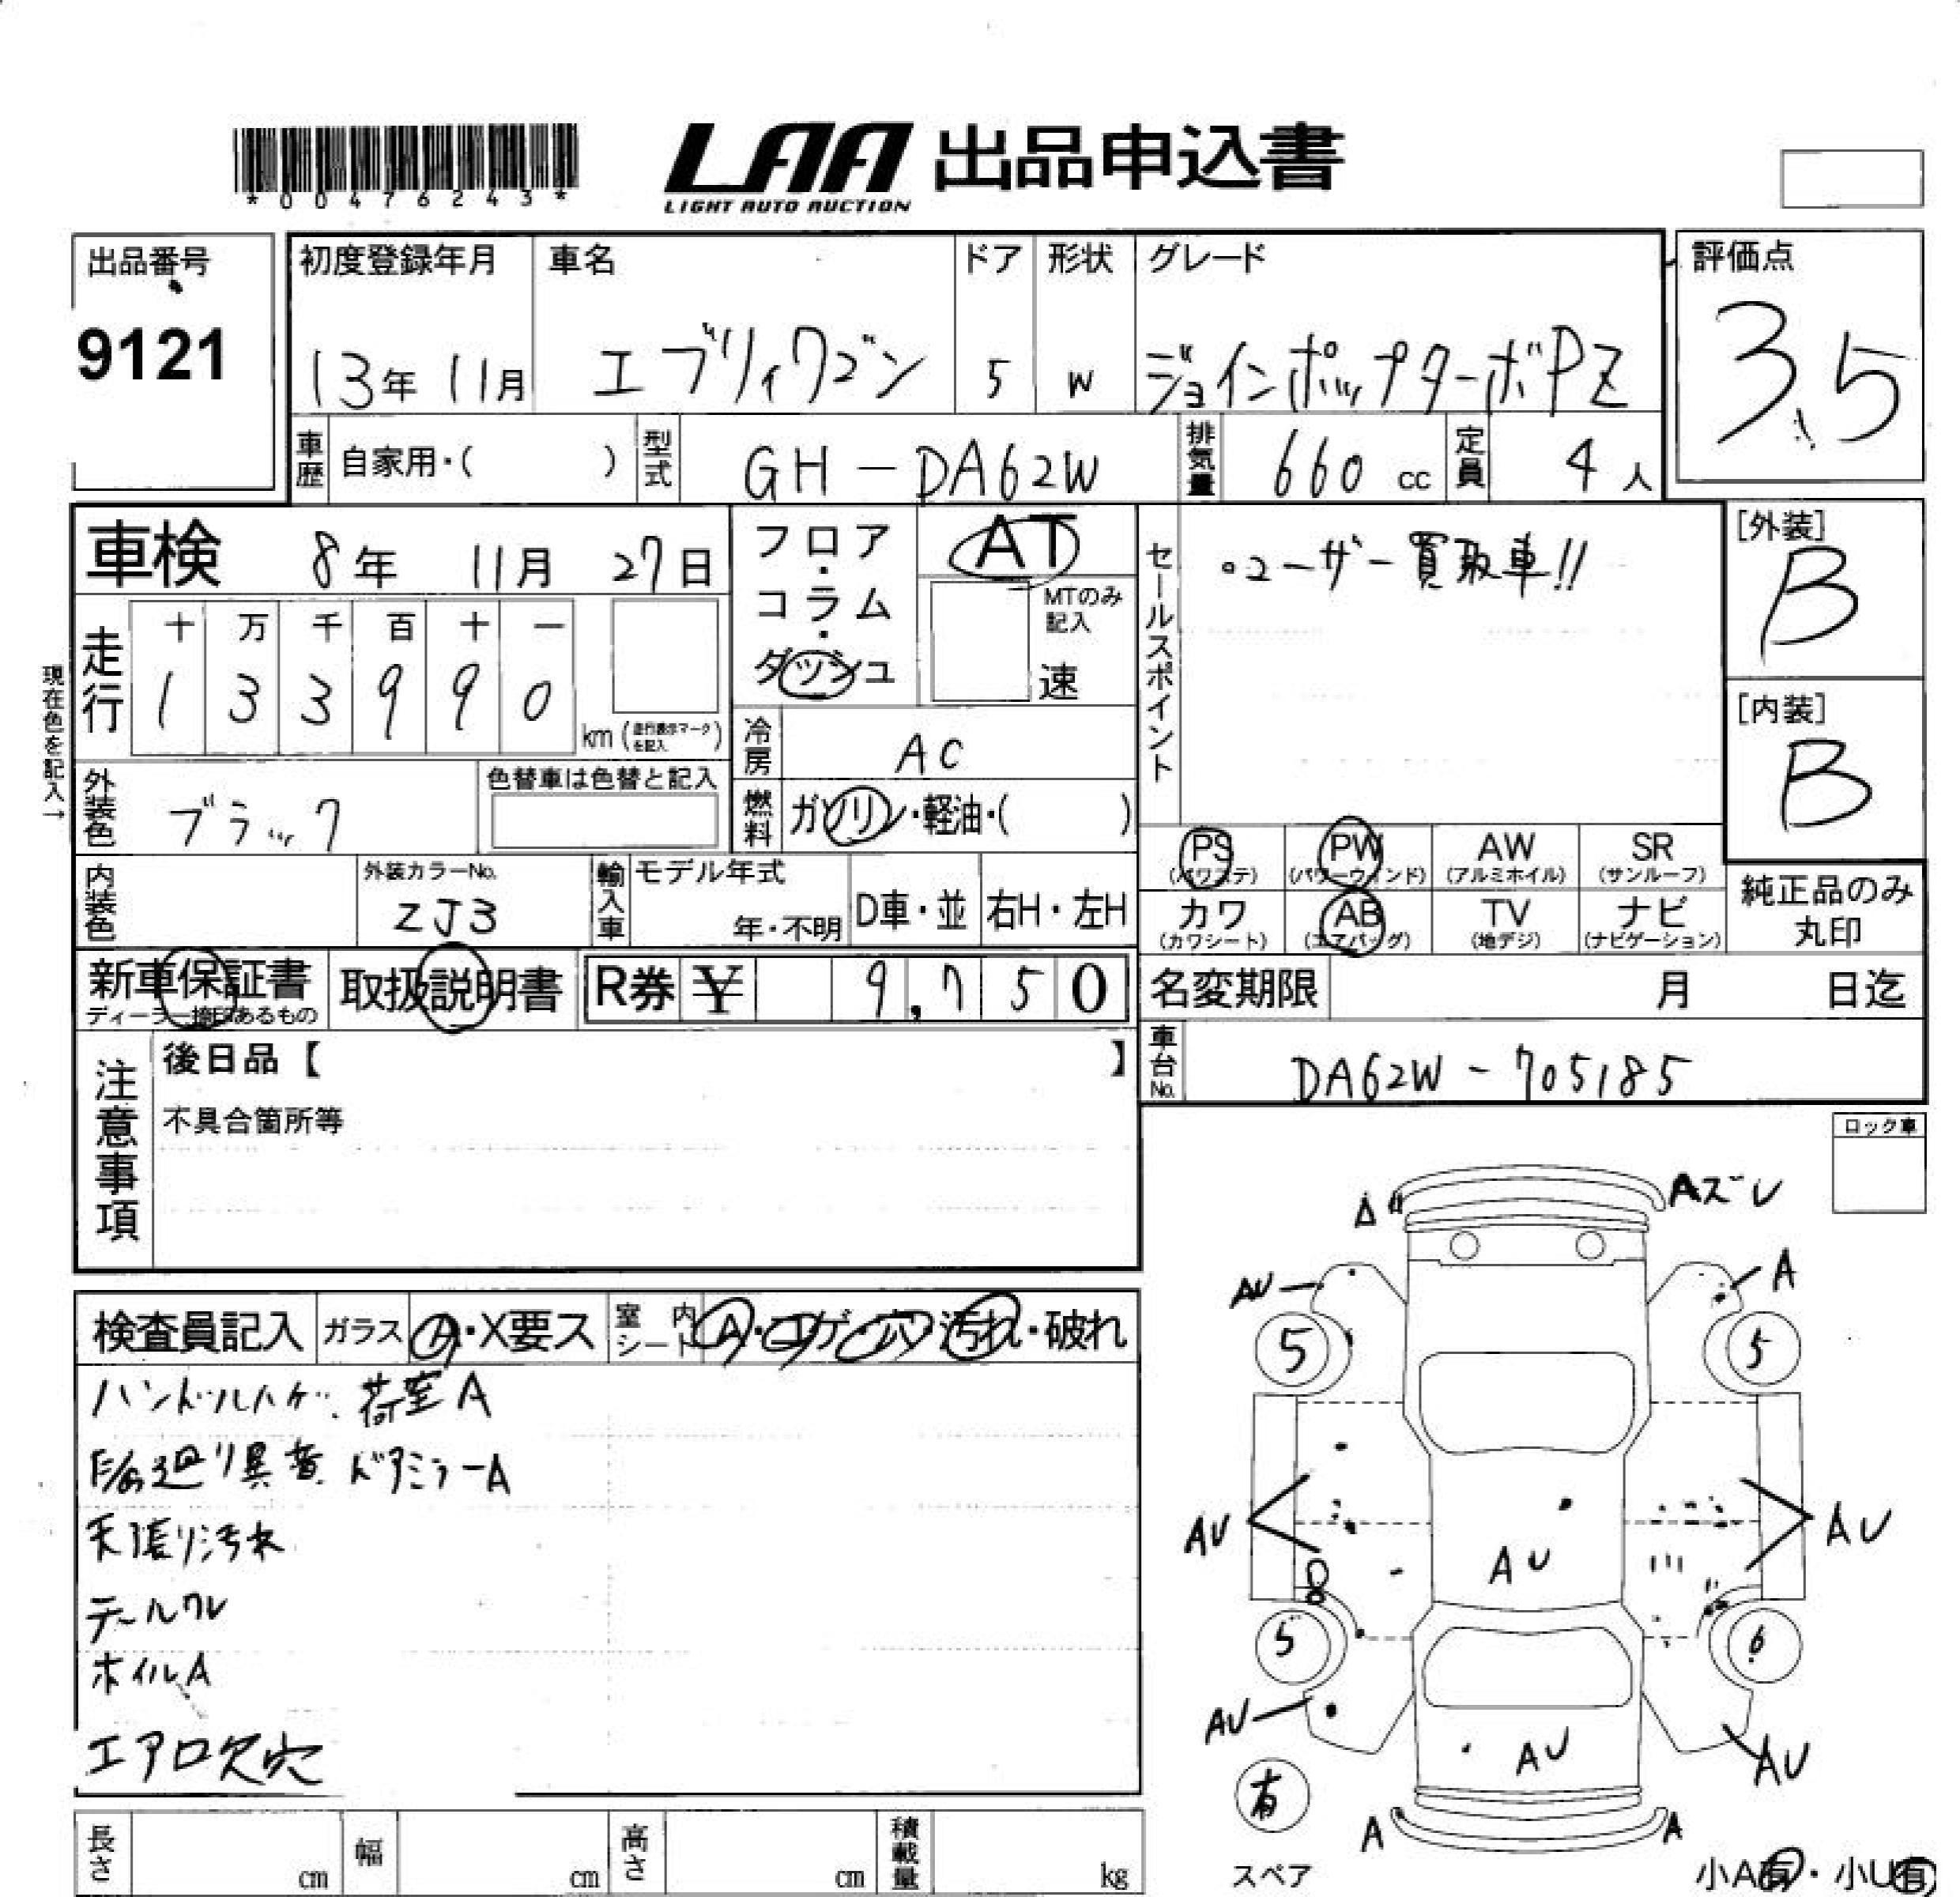 *00476243*
LAA 出品申込書
LIGHT AUTO AUCTION
出品番号
9121
初度登録年月
13年 11月
車名
エブリィワゴン
ドア
5
形状
W
グレード
ジョインポップターボPZ
評価点
3.5
車歴
自家用・( )
型式
GH-DA62W
排気量
660 cc
定員
4人
車検 8年 11月 27日
フロア・コラム・ダッシュ
AT
MTのみ記入
速
セールスポイント
・ユーザー買取車!!
[外装]
B
[内装]
B
現在色を記入→
走行
十 万 千 百 十 一
1 3 3 9 9 0
km (走行表示マークを記入)
冷房
AC
外装色
ブラック
色替車は色替と記入
燃料
ガソリン・軽油・( )
PS (パワステ)
PW (パワーウィンド)
AW (アルミホイル)
SR (サンルーフ)
カワ (カワシート)
AB (エアバッグ)
TV (地デジ)
ナビ (ナビゲーション)
純正品のみ丸印
内装色
外装カラーNo.
ZJ3
輸入車
モデル年式
年・不明
D車・並
右H・左H
新車保証書
ディーラー捺印あるもの
取扱説明書
R券 ¥ 9,750
名変期限 月 日迄
車台No.
DA62W-705185
注意事項
後日品【 】
不具合箇所等
ロック車
検査員記入
ガラス
A・X要ス
室内シート
A・コゲ・穴・汚れ・破れ
ハンドルハゲ. 荷室A
廻り異音 ドアミラーA
天張り汚れ
テールワレ
ホイルA
エアロ欠穴
A
Aズレ
AU
A
5
5
AU
AU
AU
8
5
6
AU
AU
AU
有
A
A
スペア
小A有・小U有
長さ cm
幅 cm
高さ cm
積載量 kg